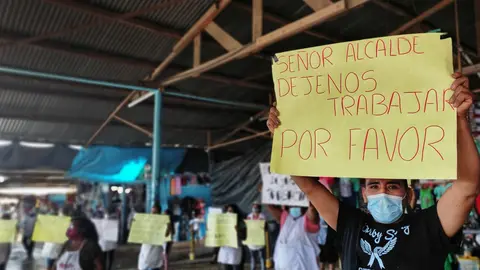 SEÑOR ALCALDE
DEJENOS
TRABAJAR
POR FAVOR